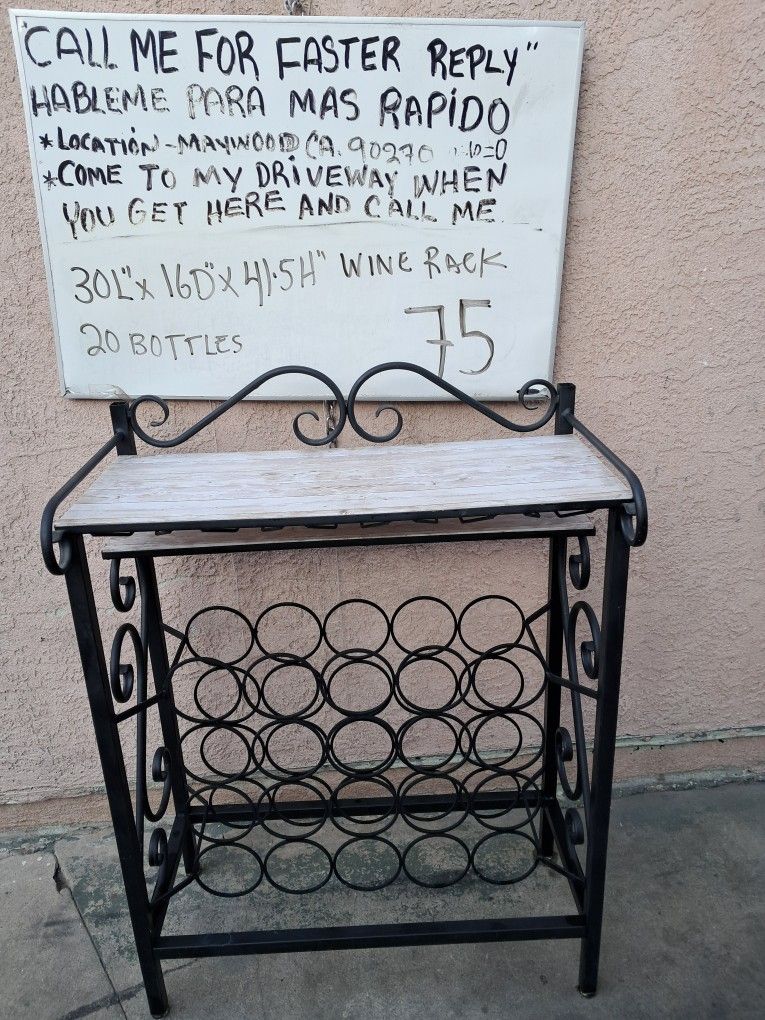 "CALL ME FOR FASTER REPLY"
HABLEME PARA MAS RAPIDO
*LOCATIÓN-MAYWOOD CA. 90270
*COME TO MY DRIVEWAY WHEN
YOU GET HERE AND CALL ME
30L"x 16D"x 41.5H" WINE RACK
20 BOTTLES
75